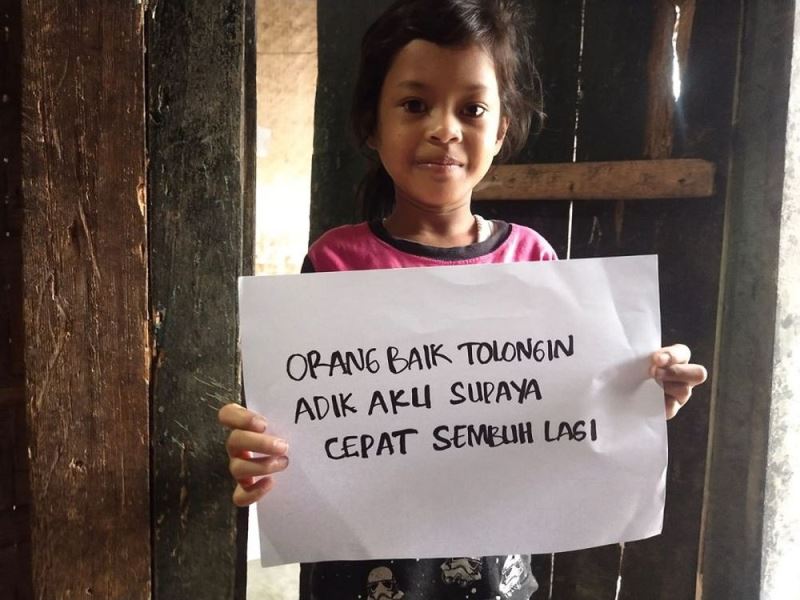 ORANG BAIK TOLONGIN
ADIK AKU SUPAYA
CEPAT SEMBUH LAGI